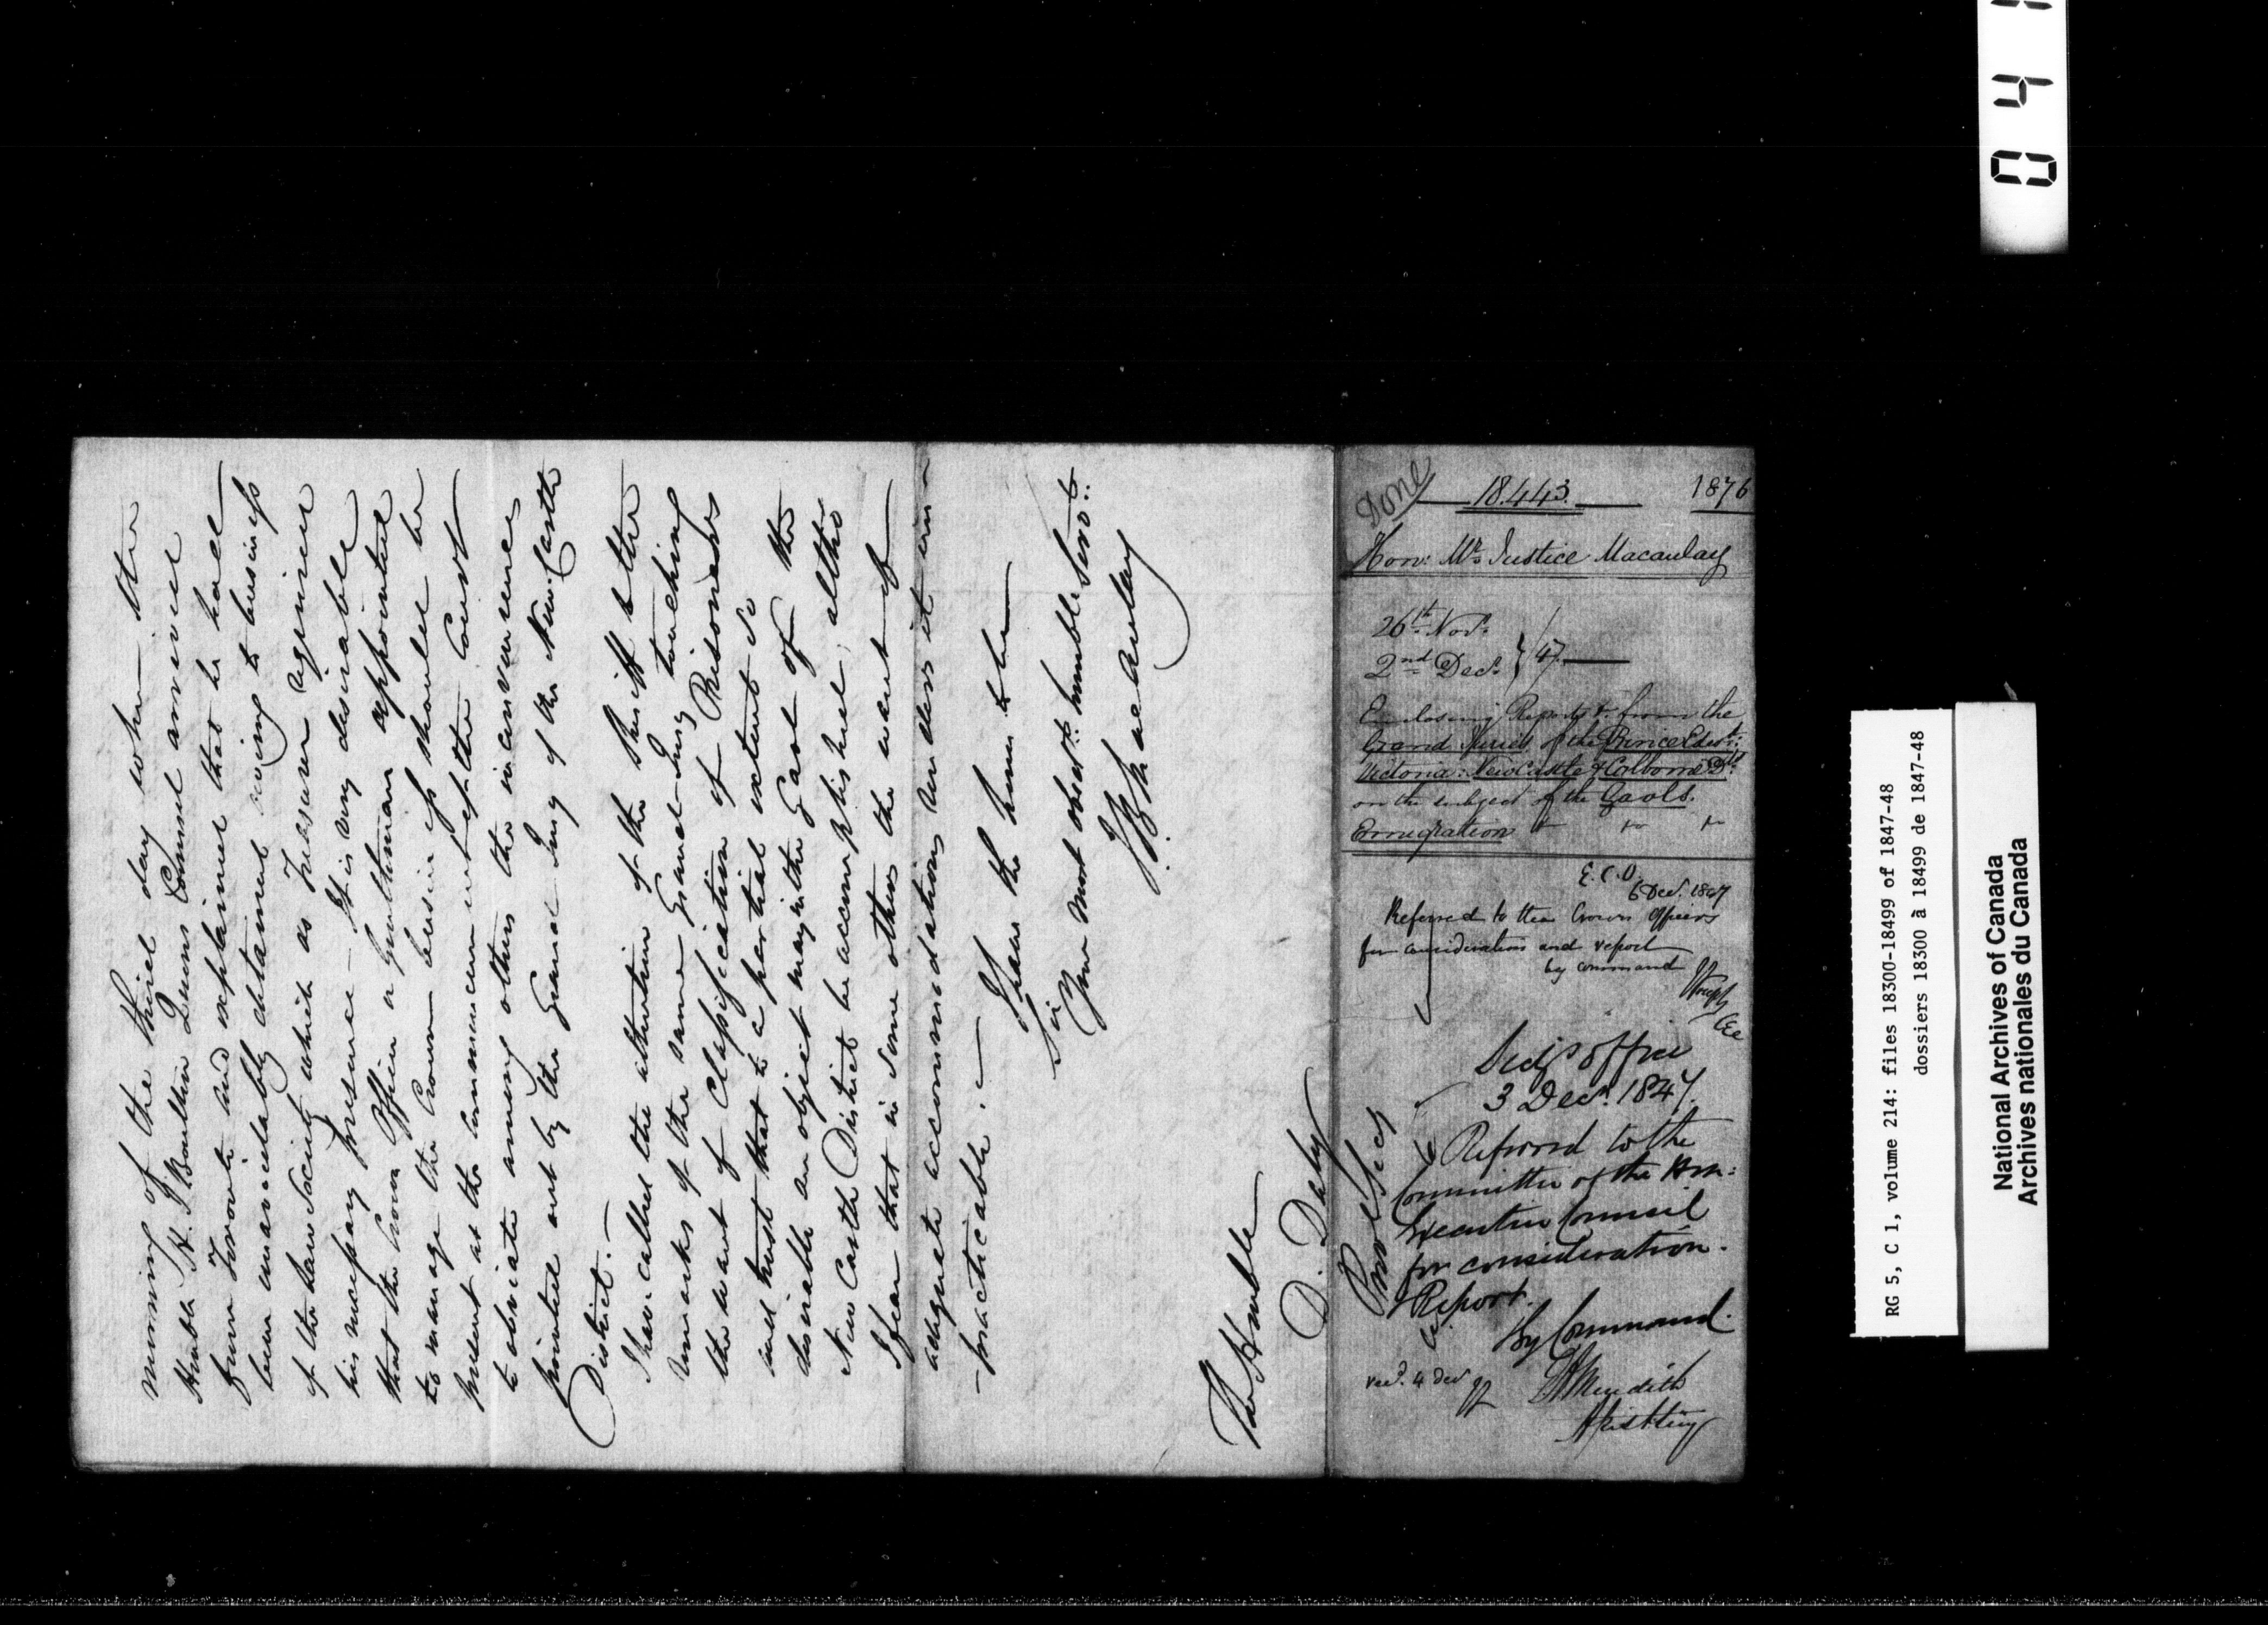 morning of the third day when the
Honble H. J. Boulton Queens Counsel arrived
from Toronto and explained that he had
been unavoidably detained owing to business
of the Law Society which as Treasurer required
his necessary presence – It is very desirable
that the Crown Officer or gentleman appointed
to manage the Crown business should be
present at the commencement of the Court
to obviate among others the inconvenience
pointed out by the Grand Jury of the New Castle
District. –
I have called the attention of the Sheriff to the
remarks of the same Grand Jury touching
the want of Classification of Prisoners
and trust that to a partial extent so
desirable an object may in the Gaol of the
New Castle District be accomplished, altho
I fear that in some others the want of
adequate accommodations renders it im
-practicable. –
I have the honor to be
Sir
Your most obedt. humble Servt.
J B Macaulay
The Honble
D. Daly
Done
18.443.
1876
Hon: Mr. Justice Macaulay
26th Novr.
2nd Decr. } /47.
Enclosing Reports &c. from the
Grand Juries of the Prince Edwd.:
Victoria: NewCastle & Colborne Dts.
on the subject of the Gaols.
Emigration &c &c &c
E. C. O.
6 Dec. 1847
Referred to the Crown Officers
for consideration and report
by command
J Joseph
CEC
Secy's Office
3 Decr. 1847.
Referred to the
Committee of the Hon:
Executive Council
for consideration
& Report.
By Command.
E A Meredith
Asst Secy
Prov. Secy
recd. 4 Dec JJ
0 4 1
RG 5, C 1, volume 214: files 18300-18499 of 1847-48
dossiers 18300 à 18499 de 1847-48
National Archives of Canada
Archives nationales du Canada